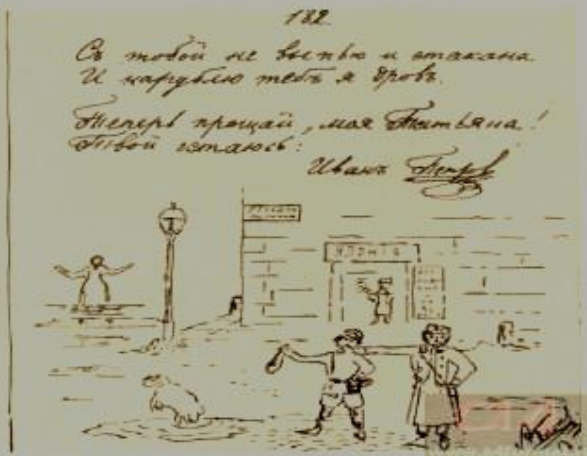 182
Съ тобой не выпью и стакана
И нарублю тебѣ я дровъ.
Теперь прощай, моя Татьяна!
Твой остаюсь:
Иванъ Петровъ